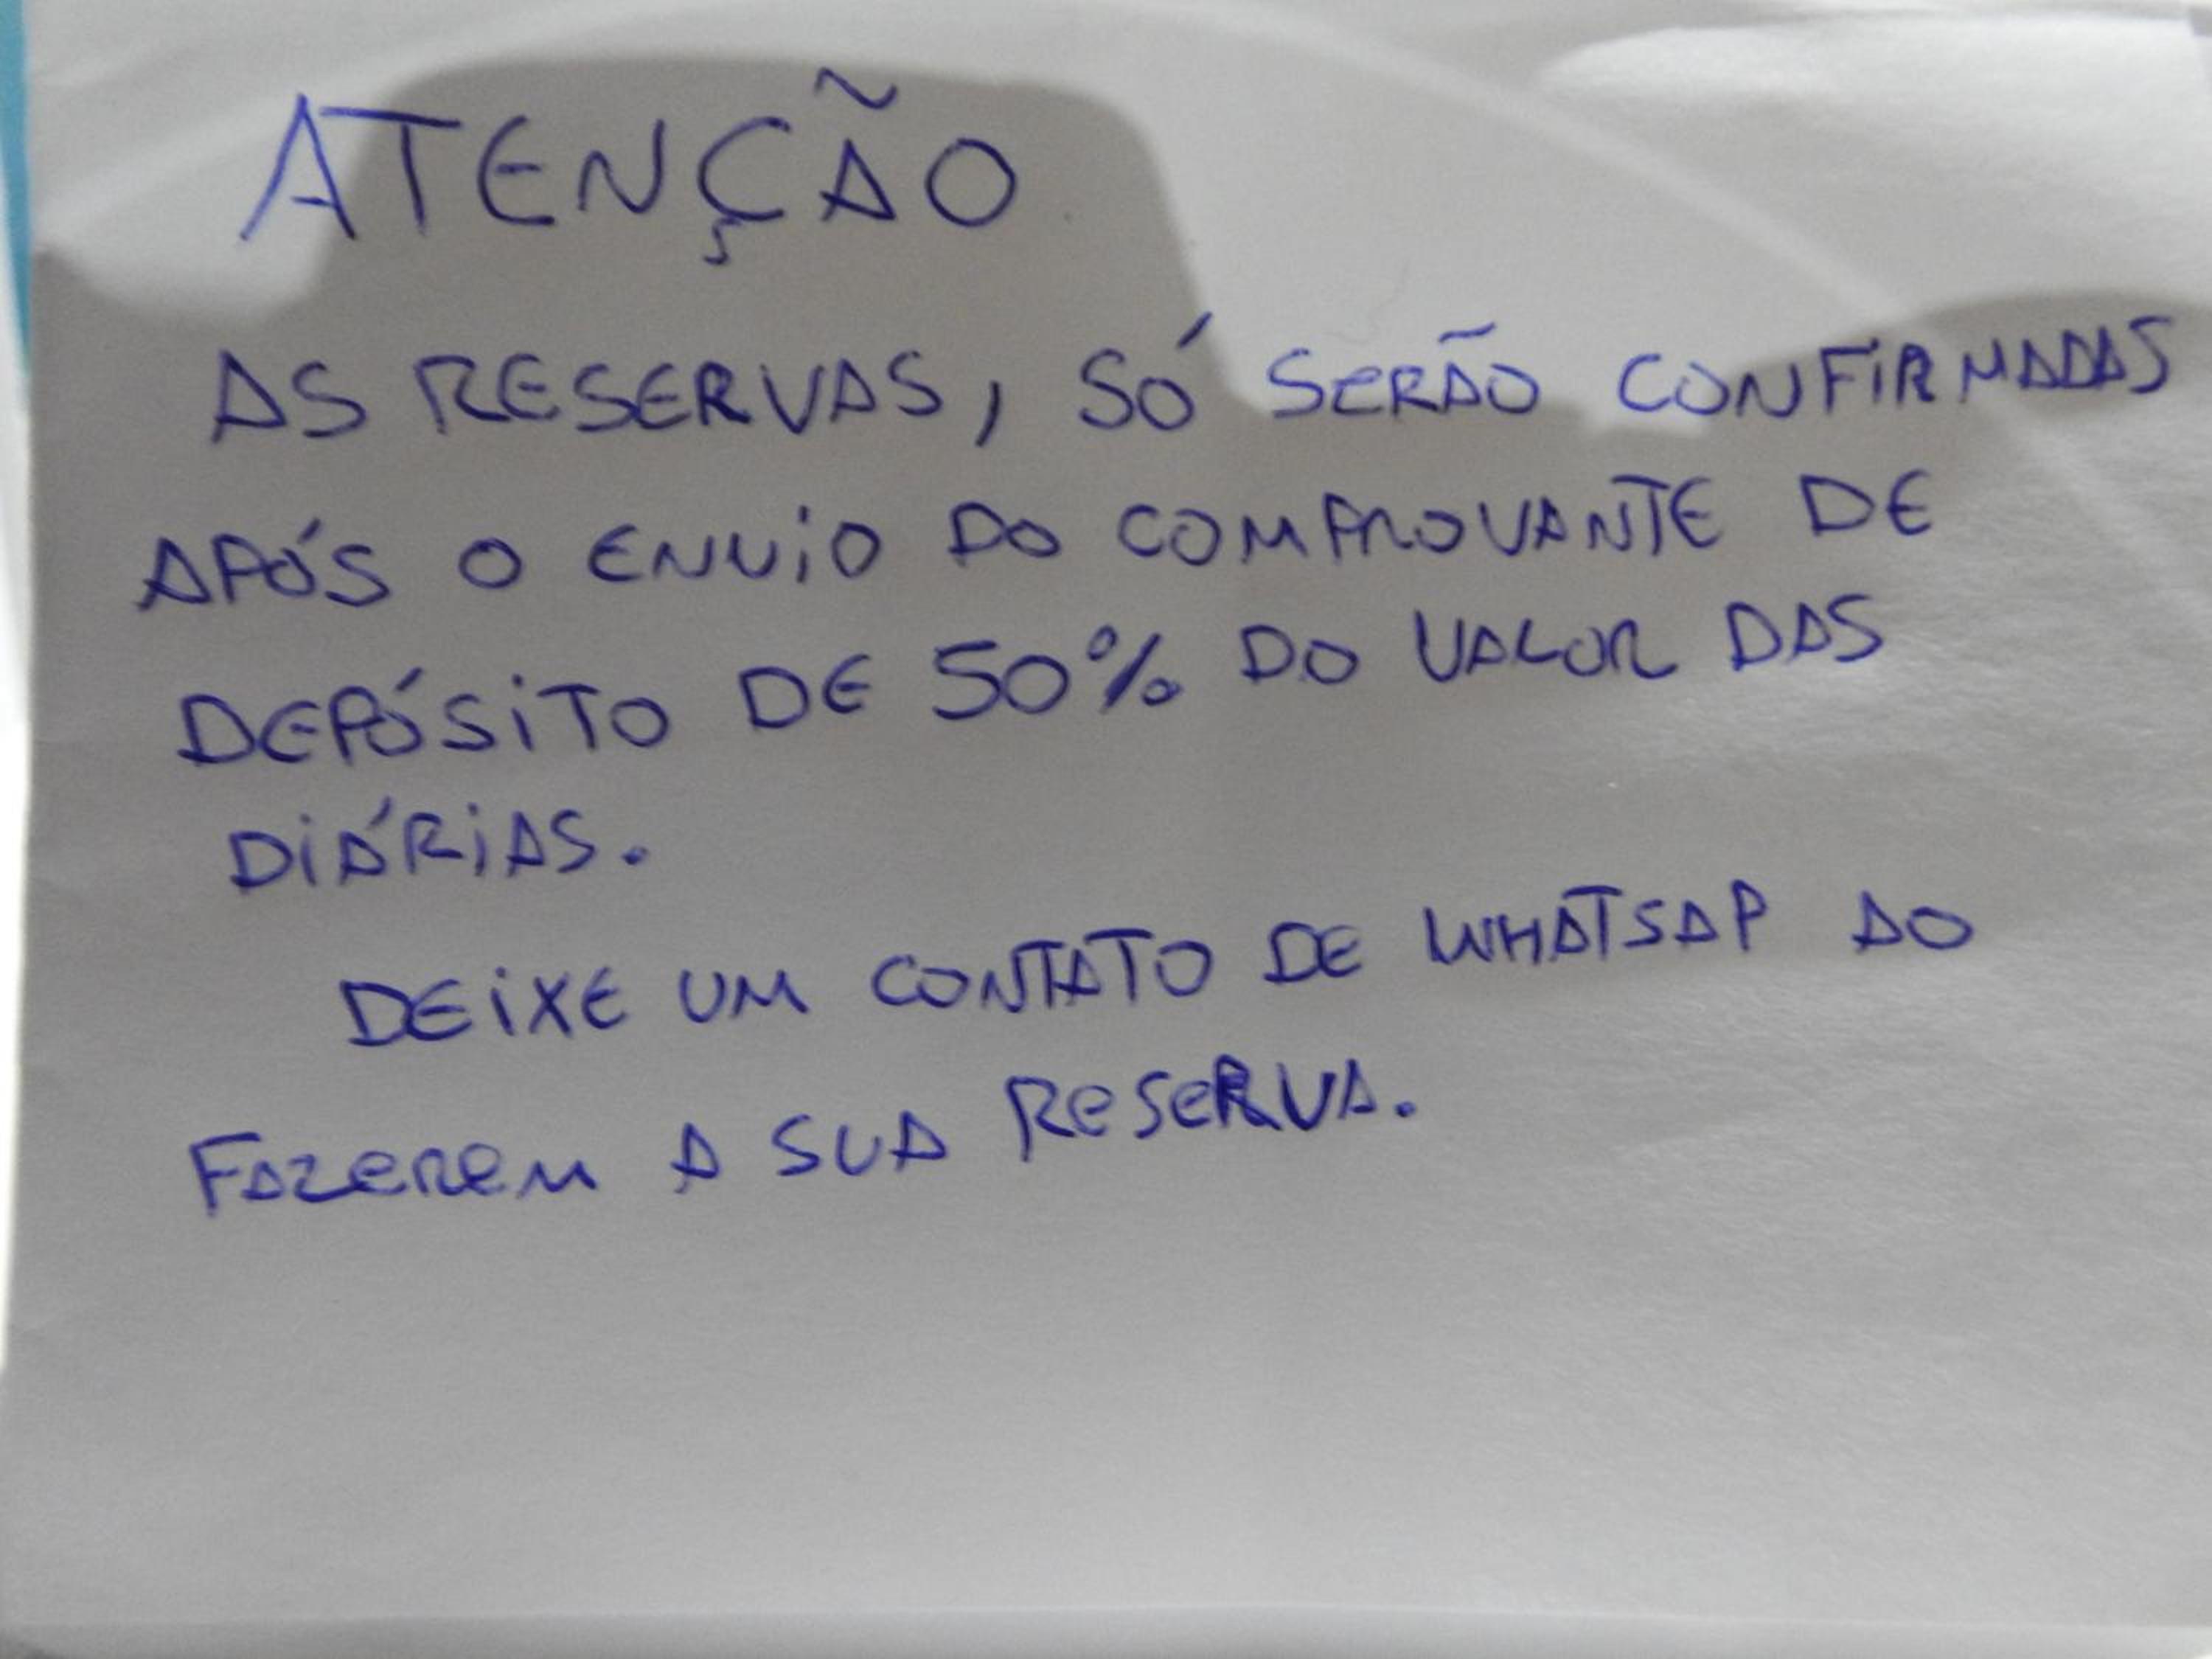 ATENÇÃO
AS RESERVAS, SÓ SERÃO CONFIRMADAS
APÓS O ENVIO DO COMPROVANTE DE
DEPÓSITO DE 50% DO VALOR DAS
DIÁRIAS.
DEIXE UM CONTATO DE WHATSAP AO
FAZEREM A SUA RESERVA.